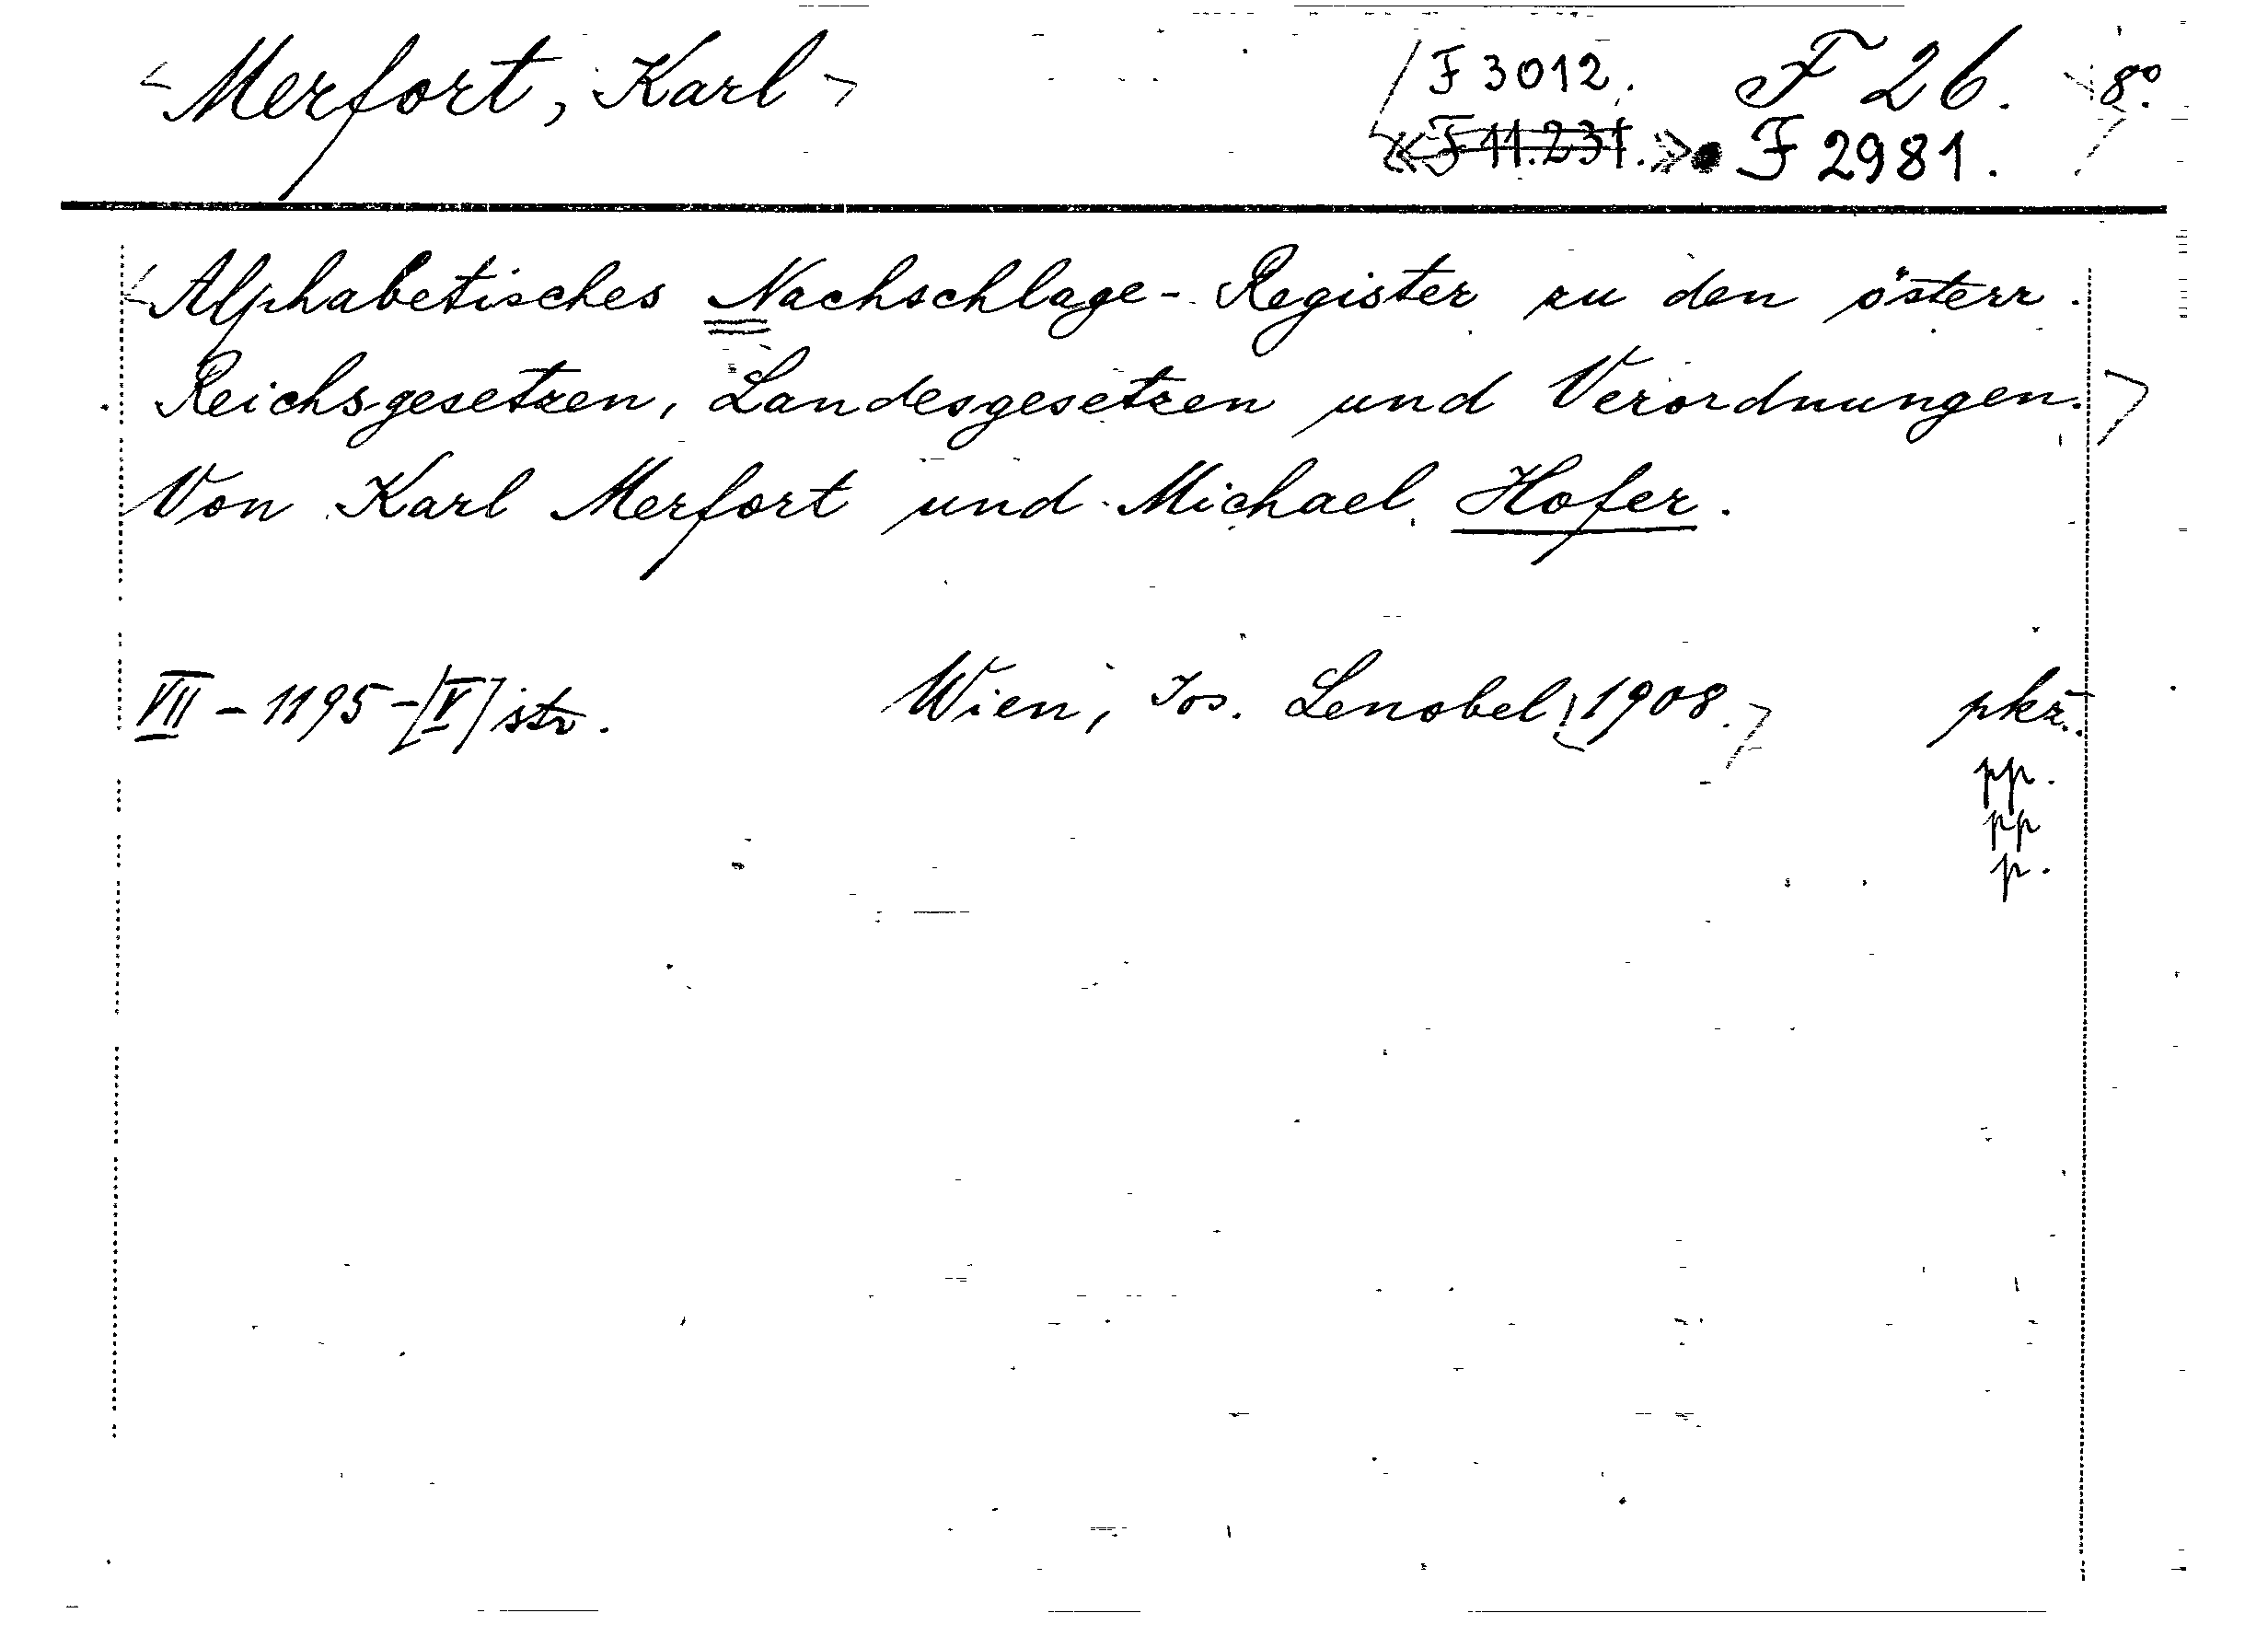 <Merfort, Karl> F 3012. F 26. 8°.
«F 11.231.» F 2981.
<Alphabetisches Nachschlage-Register zu den österr.
Reichsgesetzen, Landesgesetzen und Verordnungen.>
Von Karl Merfort und Michael Hofer.
VII-1195-[V] str. Wien, Jos. Lenobel [1908.] pkž.
pp.
pp
p.